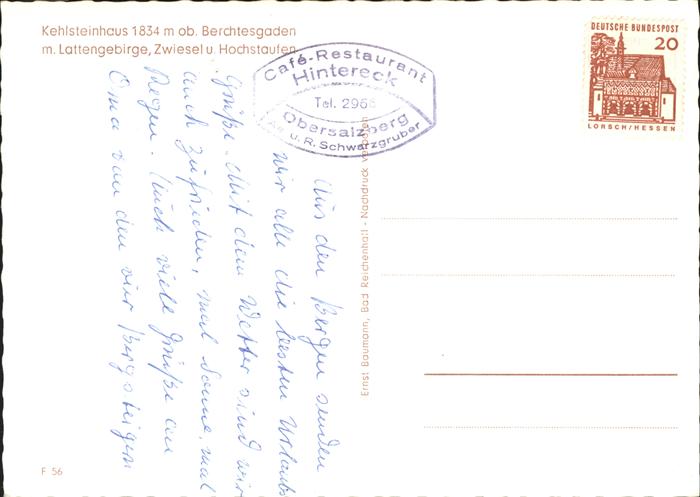 Kehlsteinhaus 1834 m ob. Berchtesgaden
m. Lattengebirge, Zwiesel u. Hochstaufen
Café-Restaurant
Hintereck
Tel. 2966
Obersalzberg
u. R. Schwarzgruber
DEUTSCHE BUNDESPOST
20
LORSCH/HESSEN
Aus den Bergen senden
wir alle die besten Urlaubs
Grüße. Mit dem Wetter sind wir
auch zufrieden, mal Sonne, mal
Regen. Auch viele Grüße an
Oma von den vier Bergsteigern
Ernst Baumann, Bad Reichenhall - Nachdruck verboten
F 56